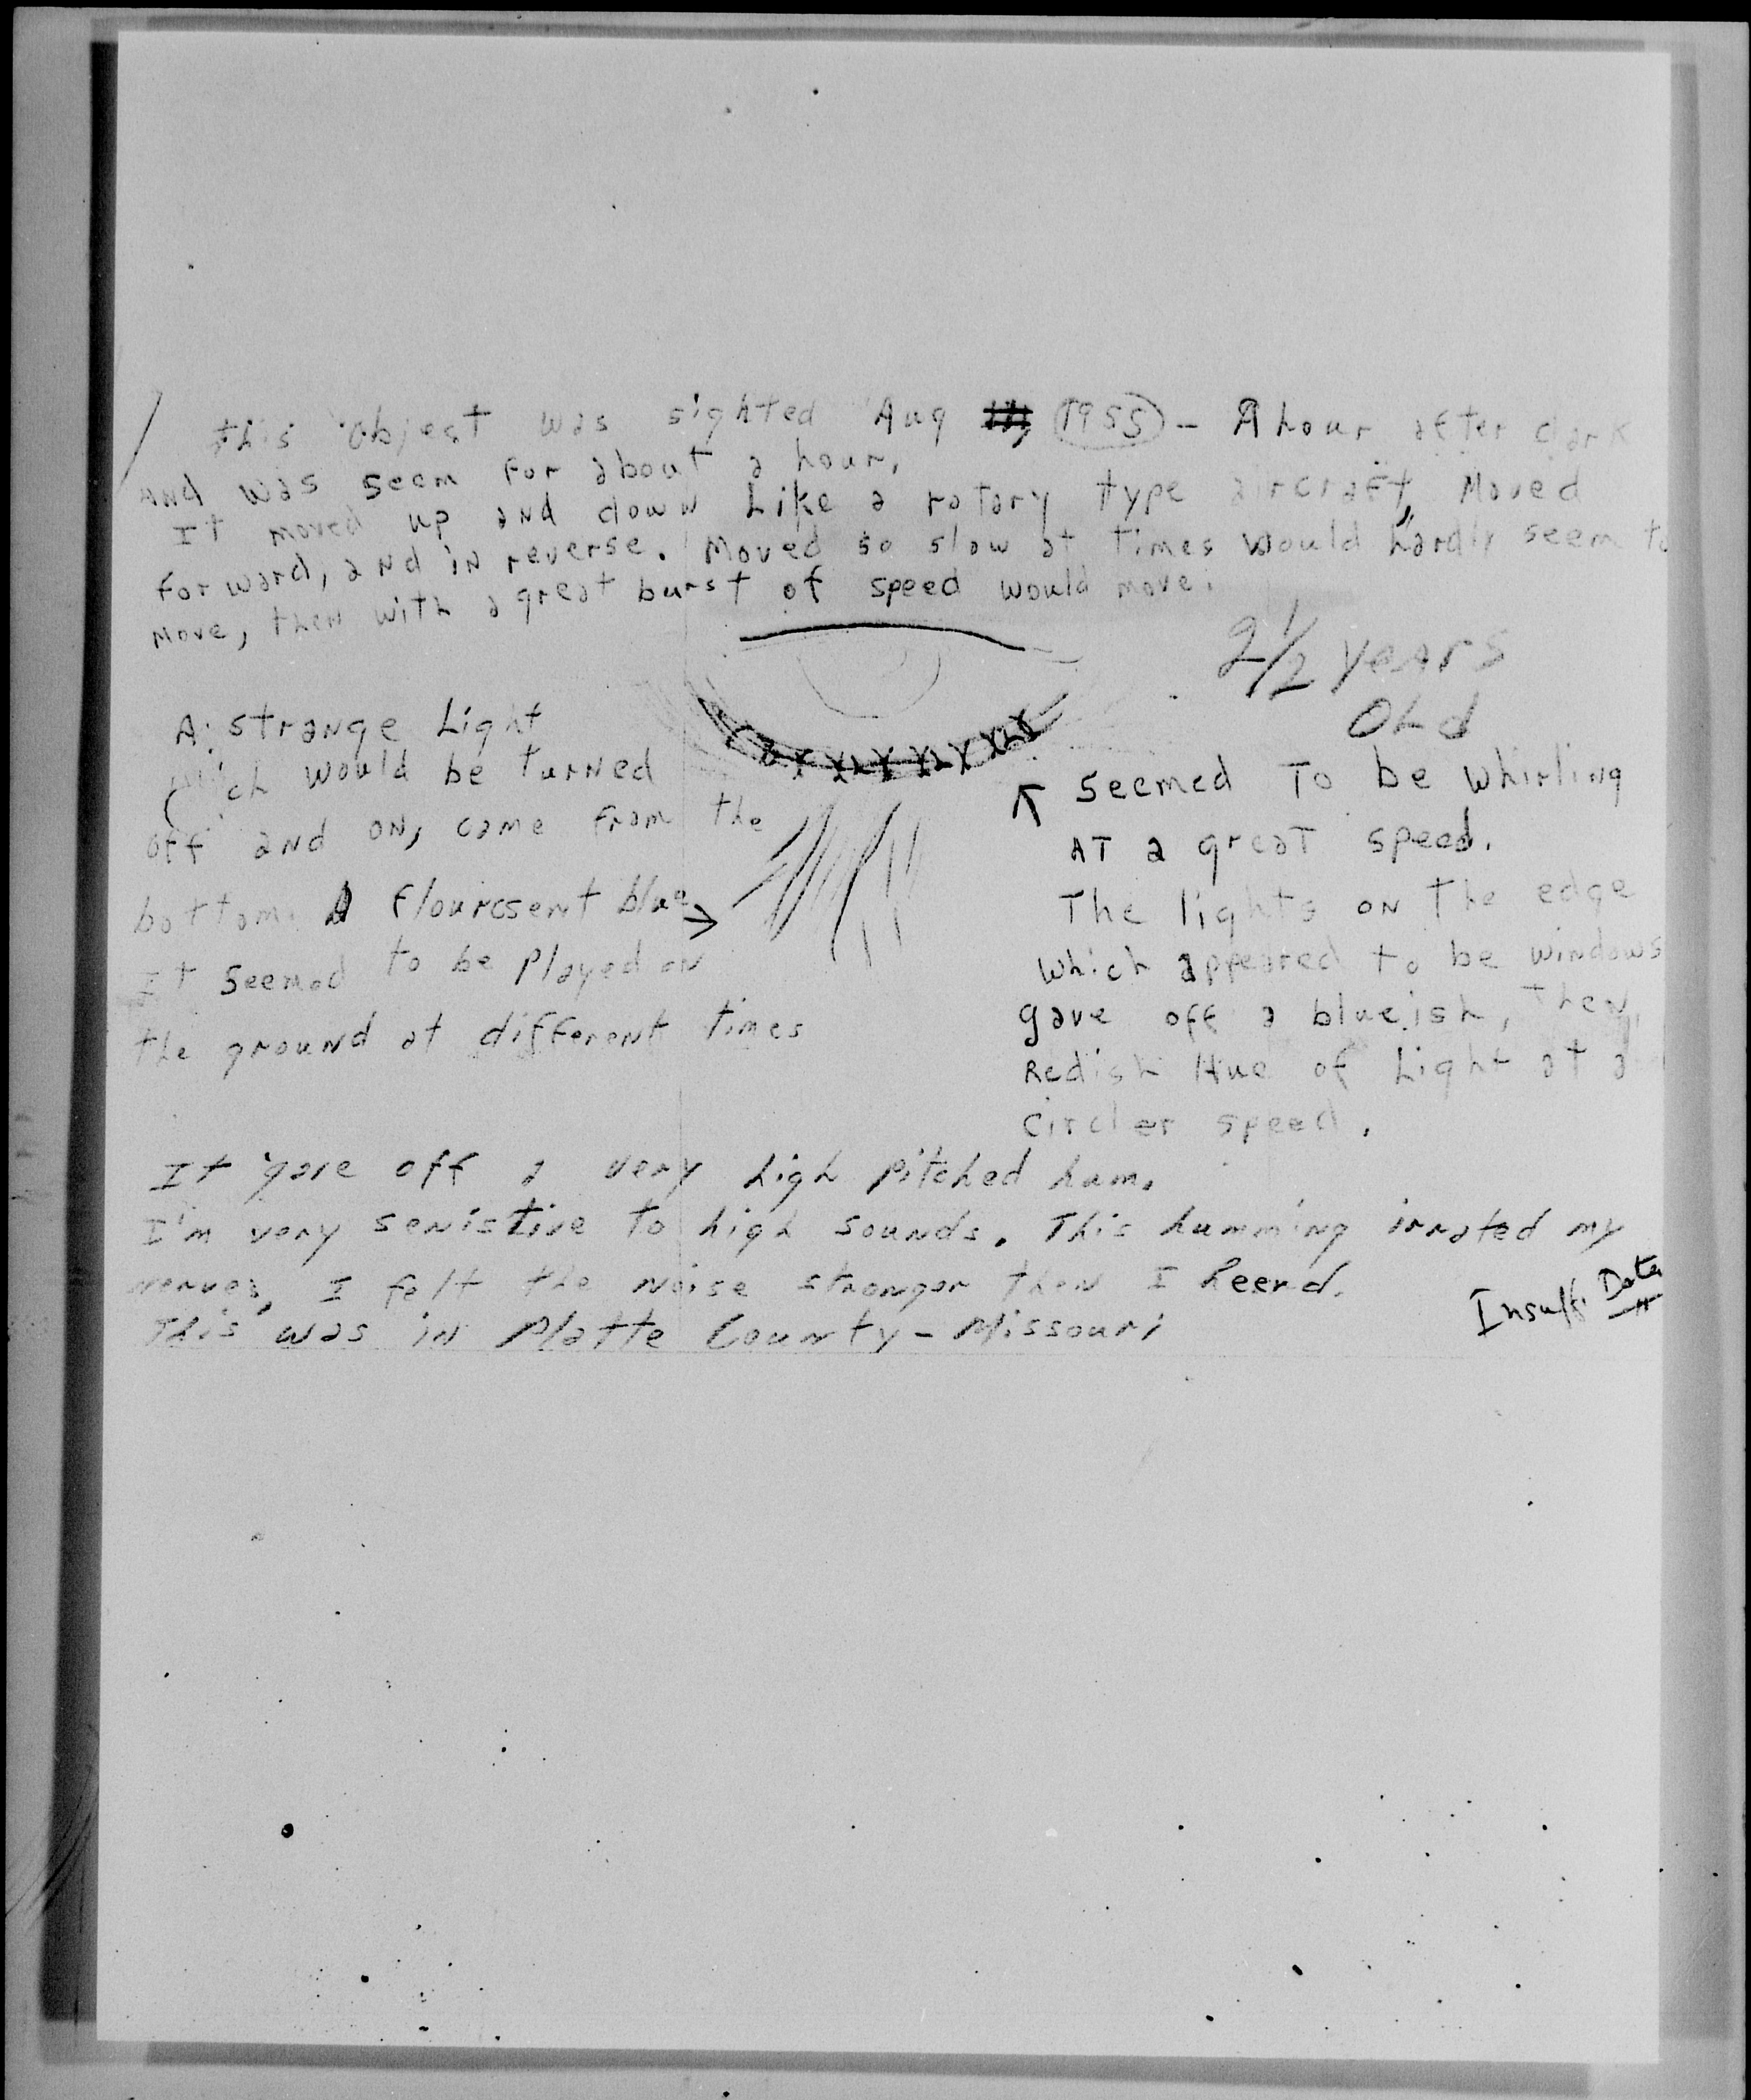 this object was sighted Aug 1955 - A hour after dark
And was seem for about a hour,
It moved up and down Like a rotary type aircraft, Moved
forward, and in reverse. Moved so slow at times would hardly seem to
move, then with a great burst of speed would move.
2 1/2 years
OLd
A strange Light
which would be turned
off and on, came from the
bottom. A flourcsent blue
It seemed to be played on
the ground at different times
seemed To be whirling
AT a great speed.
The lights on the edge
which appeared to be windows
gave off a blueish, then
Redish Hue of Light at a
circler speed.
It gave off a very high pitched hum.
I'm very senistive to high sounds. This humming irrated my
nerves, I felt the noise stronger then I heerd.
This was in Platte County - Missouri
Insuff. Data